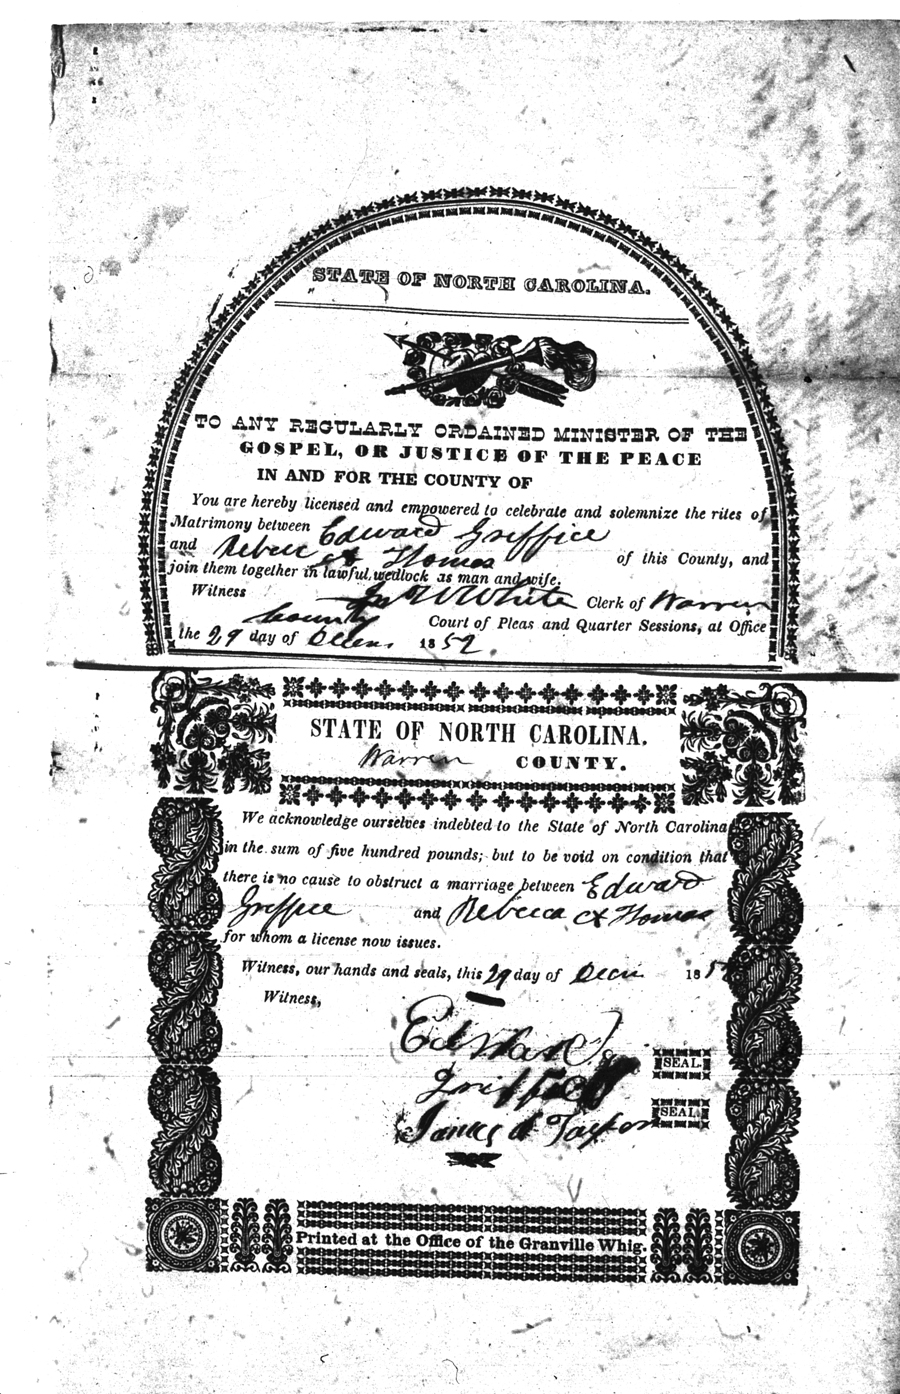 STATE OF NORTH CAROLINA.
TO ANY REGULARLY ORDAINED MINISTER OF THE
GOSPEL, OR JUSTICE OF THE PEACE
IN AND FOR THE COUNTY OF
You are hereby licensed and empowered to celebrate and solemnize the rites of
Matrimony between Edward Griffice
and Rebecc A Thomas of this County, and
join them together in lawful wedlock as man and wife.
Witness Jn W White Clerk of Warren
County Court of Pleas and Quarter Sessions, at Office
the 29 day of Decem. 1852.
STATE OF NORTH CAROLINA.
Warren COUNTY.
We acknowledge ourselves indebted to the State of North Carolina
in the sum of five hundred pounds; but to be void on condition that
there is no cause to obstruct a marriage between Edward
Griffice and Rebecca A Thomas
for whom a license now issues.
Witness, our hands and seals, this 29 day of Decm 1852
Witness,
Edward
SEAL.
James A Taylor SEAL.
Printed at the Office of the Granville Whig.